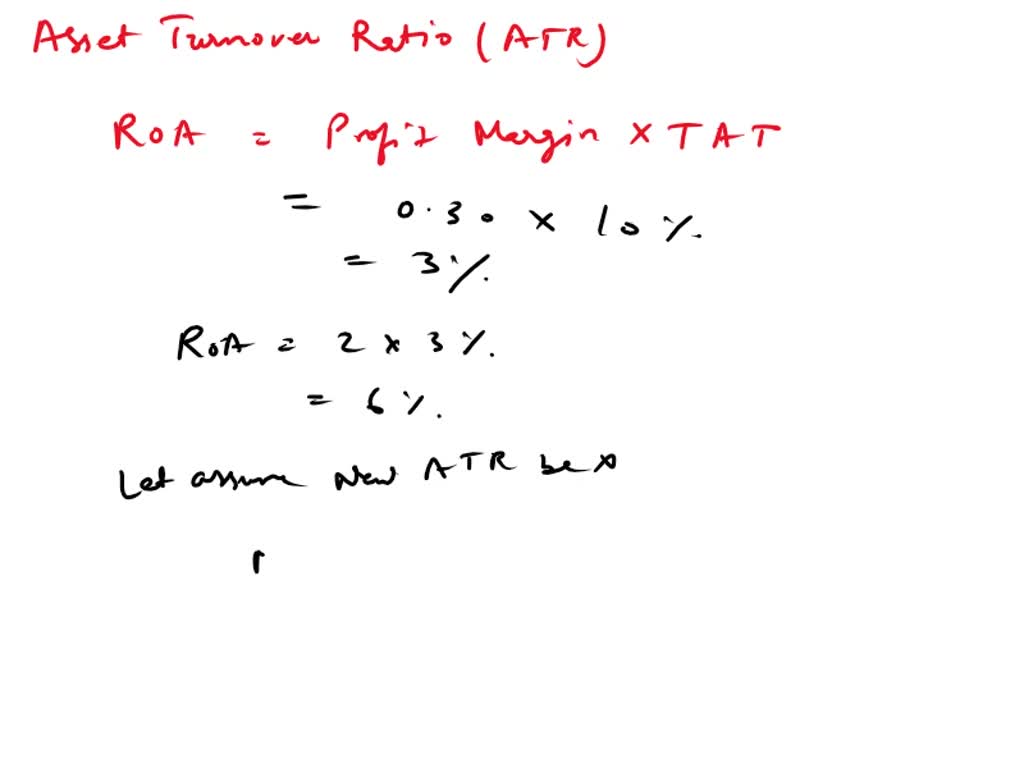 Asset Turnover Ratio (ATR)
ROA = Profit Margin × TAT
= 0.30 × 10%.
= 3%.
ROA = 2 × 3%.
= 6%.
Let assume New ATR be x